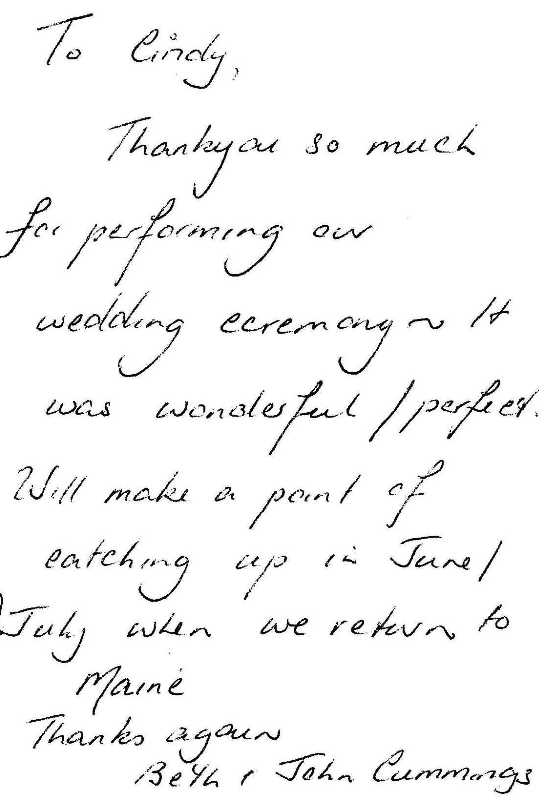 To Cindy,
Thankyou so much
for performing our
wedding ceremony ~ It
was wonderful / perfect.
Will make a point of
catching up in June /
July when we return to
Maine
Thanks again
Beth & John Cummings